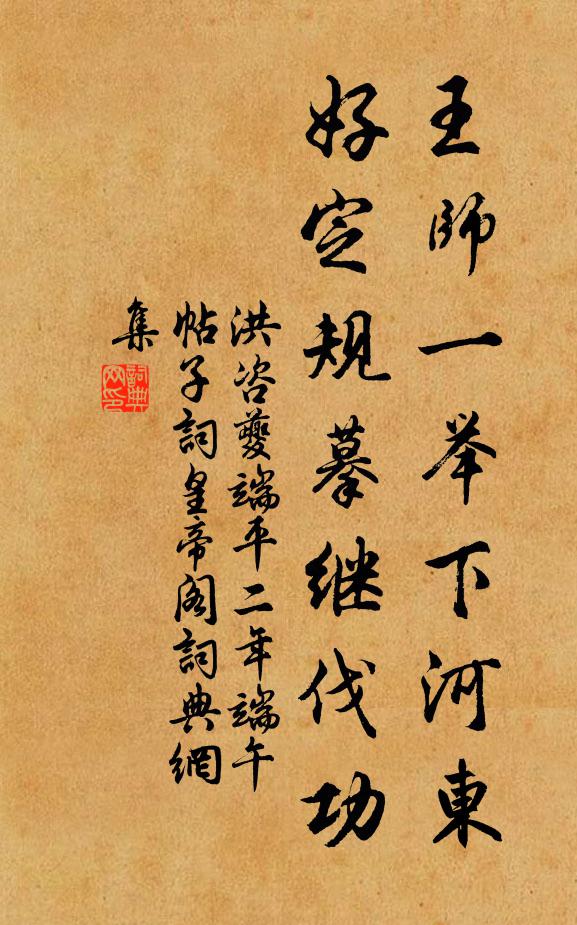 王師一举下河東
好定規摹继伐功
洪咨夔端平二年端午
帖子詞皇帝阁詞典網
集
詞典
网印